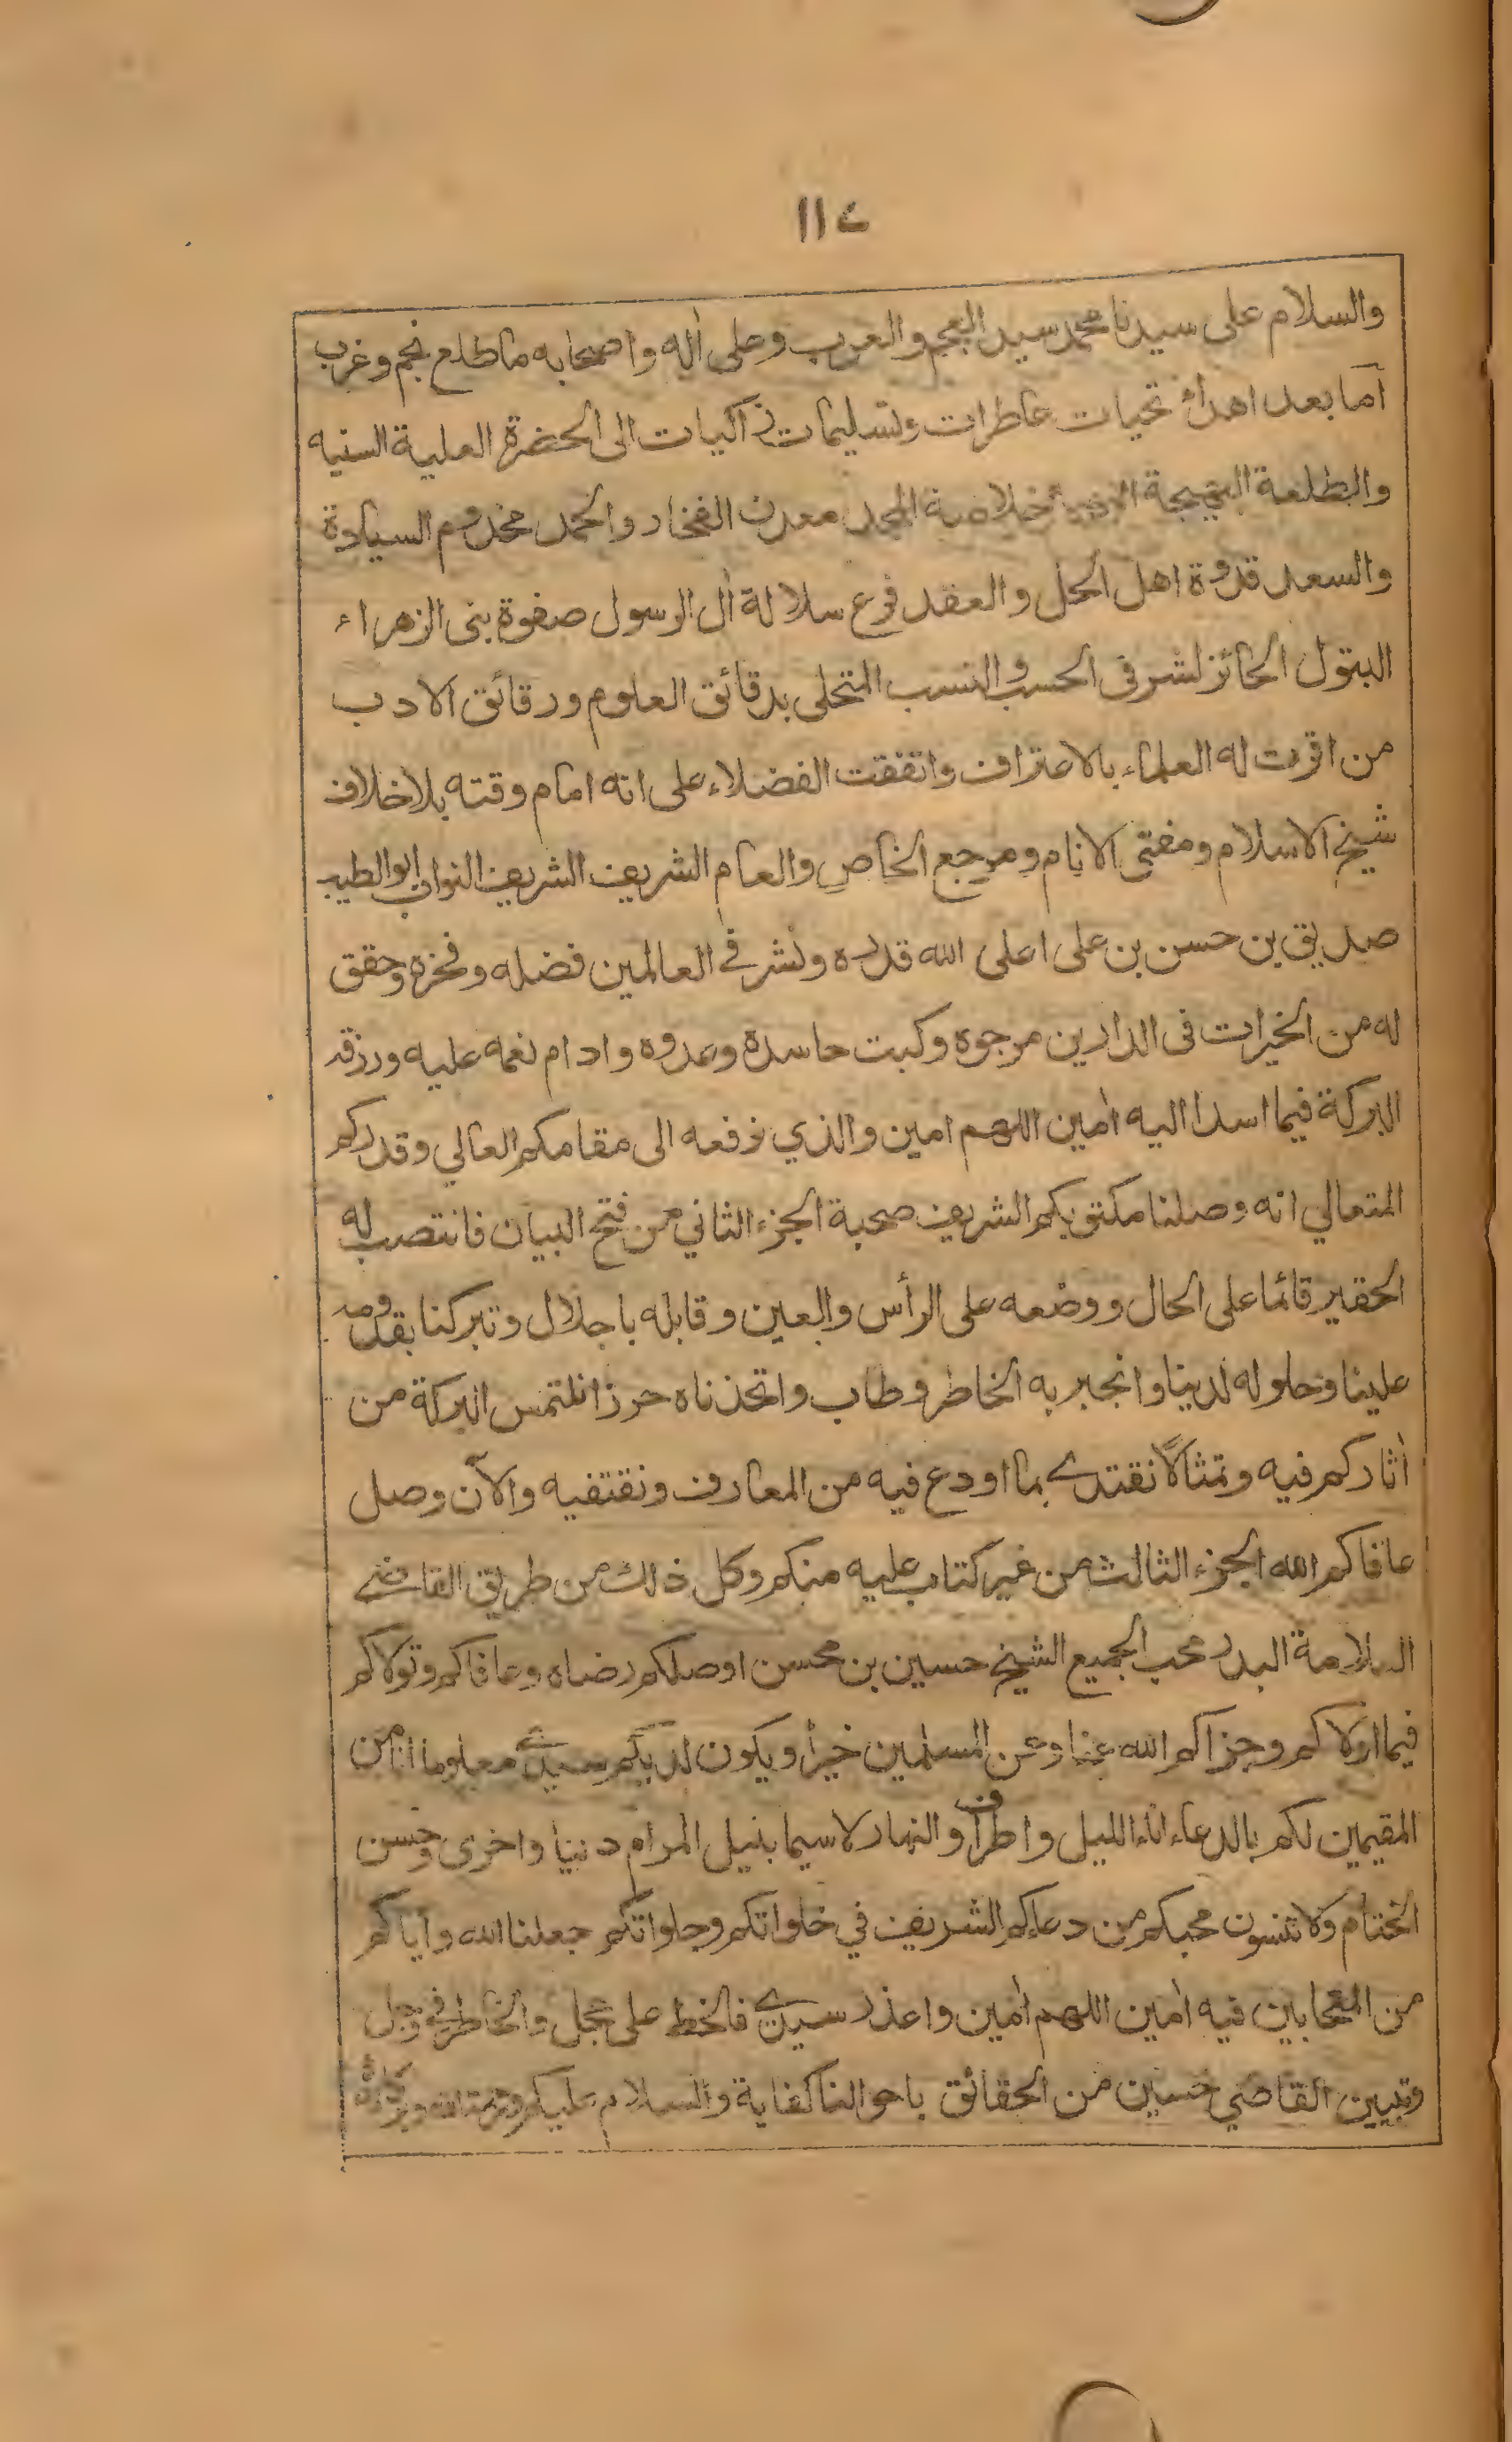 ١١٤
والسلام على سيدنا محمد سيد العجم والعرب وعلى اٰله واصحابه ما طلع نجم وغرب
اما بعد اهداء تحيات عاطرات وتسليمات زاكيات الى الحضرة العلية السنيه
والطلعة البهيجة خلاصة المجد معدن الفخار والحمد مخدوم السيادة
والسعد قدوة اهل الحل والعقد فرع سلالة اٰل الرسول صفوة بنى الزهراء
البتول الحائز لشرفى الحسب والنسب المتحلى بدقائق العلوم ورقائق الادب
من اقرت له العلماء بالاعتراف واتفقت الفضلاء على انه امام وقته بلا خلاف
شيخ الاسلام ومفتى الانام ومرجع الخاص والعام الشريف الشريف النواب ابو الطيب
صديق بن حسن بن على اعلى الله قدره ونشر في العالمين فضله وفخره وحقق
له من الخيرات فى الدارين مرجوه وكبت حاسده وعدوه وادام نعمه عليه ورزقه
البركة فيما اسدا اليه اٰمين اللهم امين والذي نرفعه الى مقامكم العالي وقدركم
المتعالي انه وصلنا مكتوبكم الشريف صحبة الجزء الثاني من فتح البيان فانتصب له
الحقير قائما على الحال ووضعه على الرأس والعين وقابله باجلال وتبركنا بقدومه
علينا وحلوله لدينا وانجبر به الخاطر وطاب واتخذناه حرزا نلتمس البركة من
اٰثاركم فيه وتمثالاً نقتدي بما اودع فيه من المعارف ونقتفيه والآن وصل
عافاكم الله الجزء الثالث من غير كتاب عليه منكم وكل ذلك من طريق القاضي
العلامة البدر محب الجميع الشيخ حسين بن محسن اوصلكم رضاه وعافاكم وتولاكم
فيما اولاكم وجزاكم الله عنا وعن المسلمين خيراً ويكون لديكم سيدي معلوما انا من
المقيمين لكم بالدعاء اناء الليل واطراف والنهار لا سيما بنيل المرام دنيا واخرى وحسن
الختام ولا تنسون محبكم من دعاءكم الشريف في خلواتكم وجلواتكم جعلنا الله واياكم
من المتحابين فيه اٰمين اللهم اٰمين واعذر سيدي فالخط على عجل والخاطر في وجل
وتبيين القاضي حسين من الحقائق باحوالنا كفاية والسلام عليكم ورحمة الله وبركاته